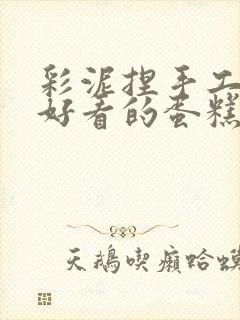 彩泥捏手工
好看的蛋糕
天鵝喫癩蛤蟆